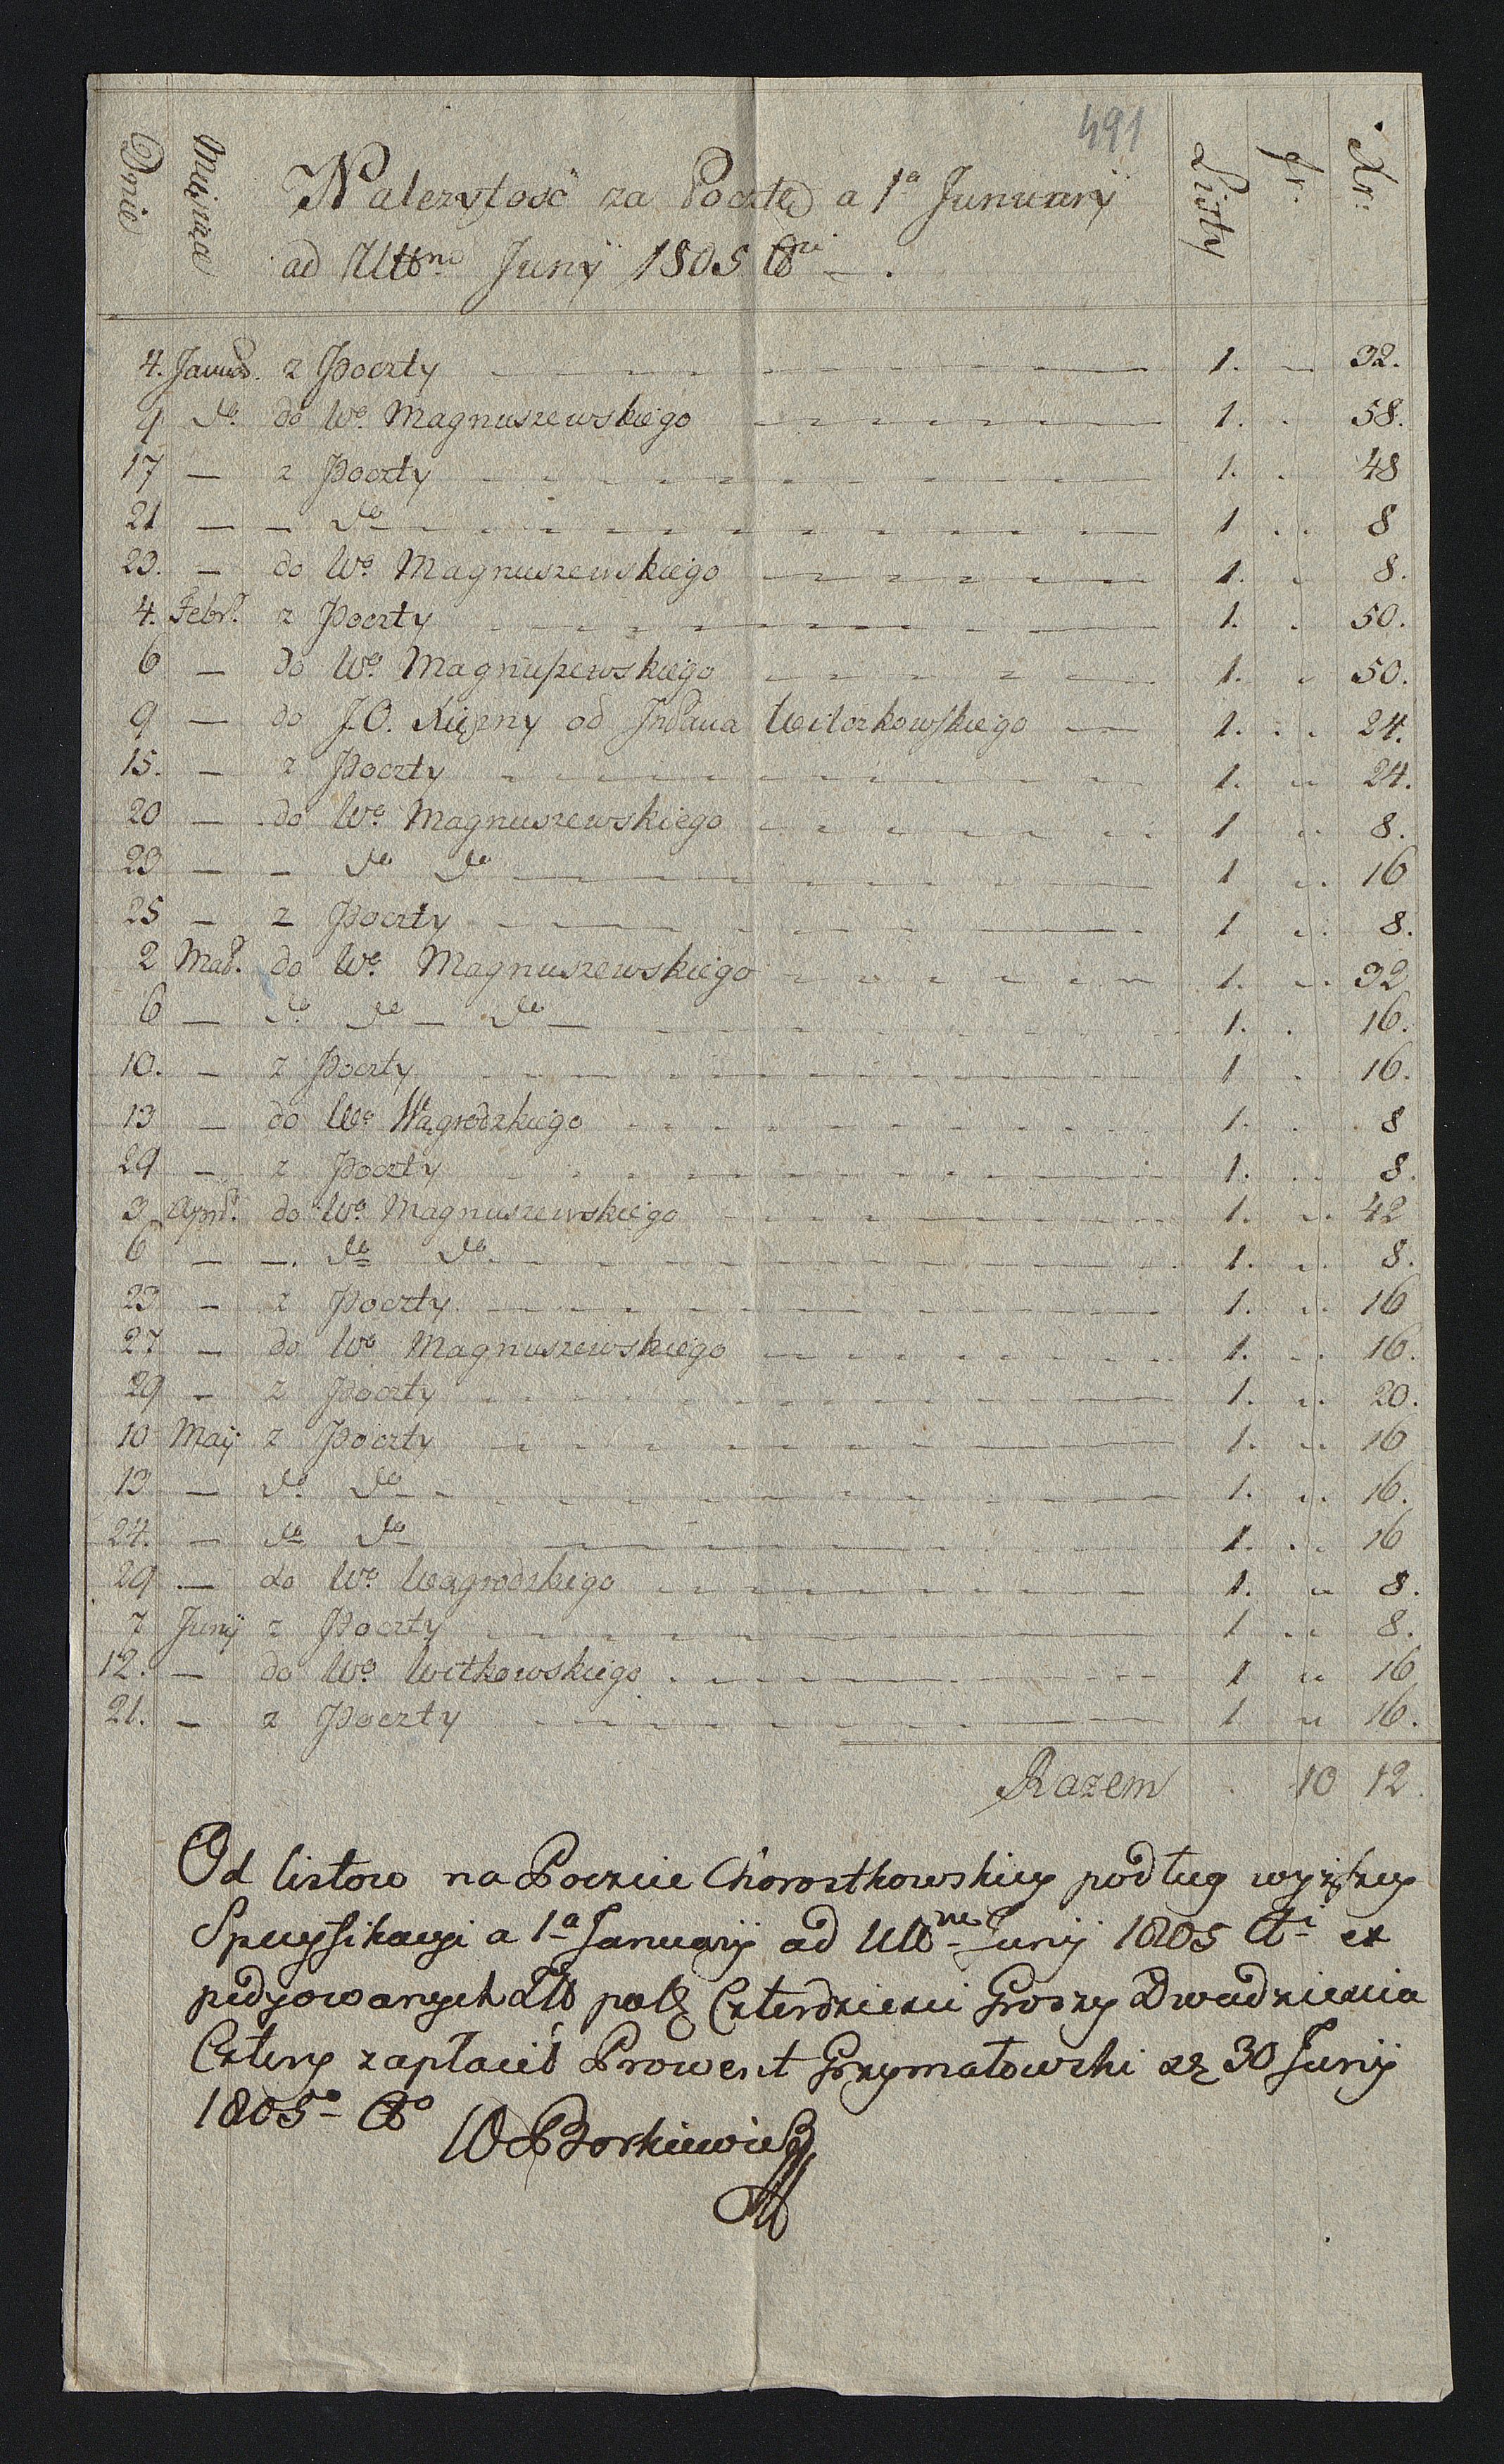 491
Dnie Miesiąca Należytość za Pocztę a 1ª Januarÿ Listy fr. Xr:
ad Ult^mo Junÿ 1805
4. Januar. z Poczty 1. 32.
4 do do W° Magnuszewskiego 1. 58.
17 — z Poczty 1. 48
21 — — do 1 8
23. — do W° Magnuszewskiego 1. 8.
4. Febr. z Poczty 1. 50.
6 — do W° Magnuszewskiego 1. 50.
9 — do J.O. Xiężny od 1. 24.
15. — z Poczty 1. 24.
20 — do W° Magnuszewskiego 1 8.
23 — — do do 1 16
25 — z Poczty 1 8.
2 Mar. do W° Magnuszewskiego 1. 32
6 — do do — do — 1. 16.
10. — z Poczty 1 16.
13 — do W° Wągrodzkiego 1. 8
29 — z Poczty 1. 8.
3 Apr. do W° Magnuszewskiego 1. 42
6 — —. do do. 1. 8.
23 — z Poczty 1. 16
27 — do W° Magnuszewskiego 1. 16.
29 — z Poczty 1. 20.
10 Maÿ z Poczty 1. 16
13 — do do 1. 16.
24. — do do 1. 16
29 — do W° Wągrodzkiego 1. 8.
7 Junÿ z Poczty 1 8.
12. — do W° Witkowskiego 1 16
21. — z Poczty 1 16.
Razem 10 12
Od listow na Poczcie Chorostkowskiey podług wyższey
Specyfikacyi a 1ª Januarÿ ad Ult^mo Junÿ 1805 ex
pedyowanych polz Czterdziesci Groszy Dwadziescia
Cztery zapłacił Prowent Grzymałowski dz 30 Junÿ
1805°
Borkiewicz